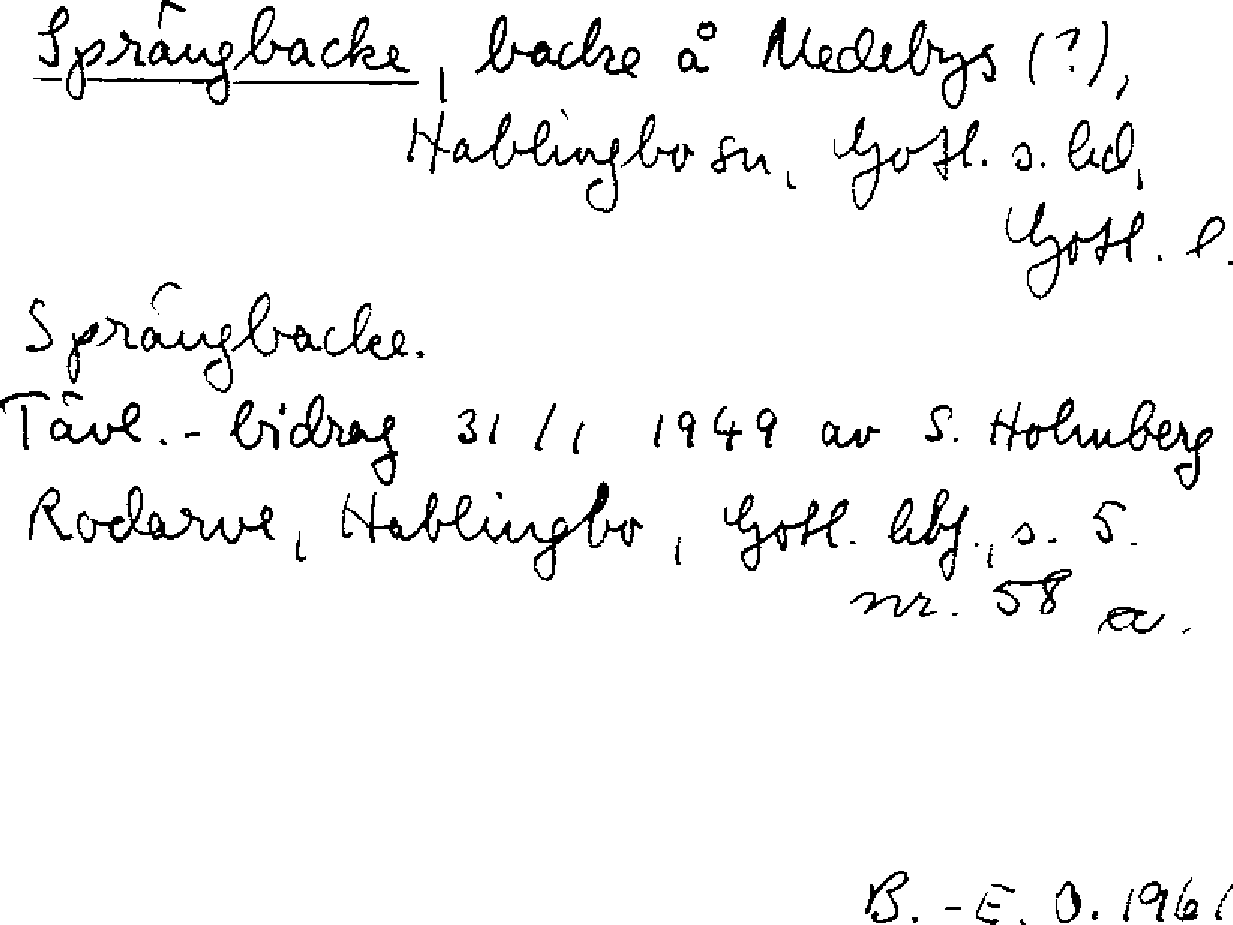 Sprängbacke, backe å Medebys (?),
Hablingbo sn, Gotl. s. hd,
Gotl. l.
Sprängbacke.
Tävl.-bidrag 31/1 1949 av S. Holmberg
Rodarve, Hablingbo, Gotl. hbf., s. 5.
nr. 58 a.
B.-E. O. 1961